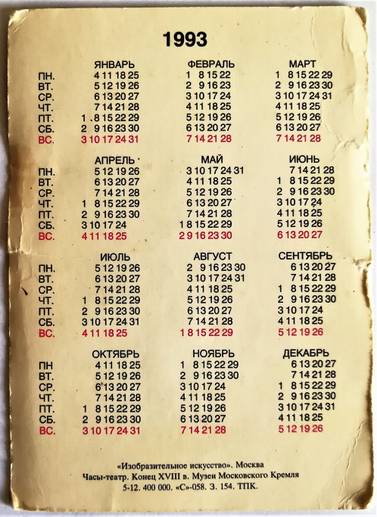 1993
ЯНВАРЬ ФЕВРАЛЬ МАРТ
ПН. 4 11 18 25 1 8 15 22 1 8 15 22 29
ВТ. 5 12 19 26 2 9 16 23 2 9 16 23 30
СР. 6 13 20 27 3 10 17 24 3 10 17 24 31
ЧТ. 7 14 21 28 4 11 18 25 4 11 18 25
ПТ. 1 8 15 22 29 5 12 19 26 5 12 19 26
СБ. 2 9 16 23 30 6 13 20 27 6 13 20 27
ВС. 3 10 17 24 31 7 14 21 28 7 14 21 28
АПРЕЛЬ МАЙ ИЮНЬ
ПН. 5 12 19 26 3 10 17 24 31 7 14 21 28
ВТ. 6 13 20 27 4 11 18 25 1 8 15 22 29
СР. 7 14 21 28 5 12 19 26 2 9 16 23 30
ЧТ. 1 8 15 22 29 6 13 20 27 3 10 17 24
ПТ. 2 9 16 23 30 7 14 21 28 4 11 18 25
СБ. 3 10 17 24 1 8 15 22 29 5 12 19 26
ВС. 4 11 18 25 2 9 16 23 30 6 13 20 27
ИЮЛЬ АВГУСТ СЕНТЯБРЬ
ПН. 5 12 19 26 2 9 16 23 30 6 13 20 27
ВТ. 6 13 20 27 3 10 17 24 31 7 14 21 28
СР. 7 14 21 28 4 11 18 25 1 8 15 22 29
ЧТ. 1 8 15 22 29 5 12 19 26 2 9 16 23 30
ПТ. 2 9 16 23 30 6 13 20 27 3 10 17 24
СБ. 3 10 17 24 31 7 14 21 28 4 11 18 25
ВС. 4 11 18 25 1 8 15 22 29 5 12 19 26
ОКТЯБРЬ НОЯБРЬ ДЕКАБРЬ
ПН 4 11 18 25 1 8 15 22 29 6 13 20 27
ВТ. 5 12 19 26 2 9 16 23 30 7 14 21 28
СР. 6 13 20 27 3 10 17 24 1 8 15 22 29
ЧТ. 7 14 21 28 4 11 18 25 2 9 16 23 30
ПТ. 1 8 15 22 29 5 12 19 26 3 10 17 24 31
СБ. 2 9 16 23 30 6 13 20 27 4 11 18 25
ВС. 3 10 17 24 31 7 14 21 28 5 12 19 26
«Изобразительное искусство». Москва
Часы-театр. Конец XVIII в. Музеи Московского Кремля
5-12. 400 000. «С»-058. З. 154. ТПК.